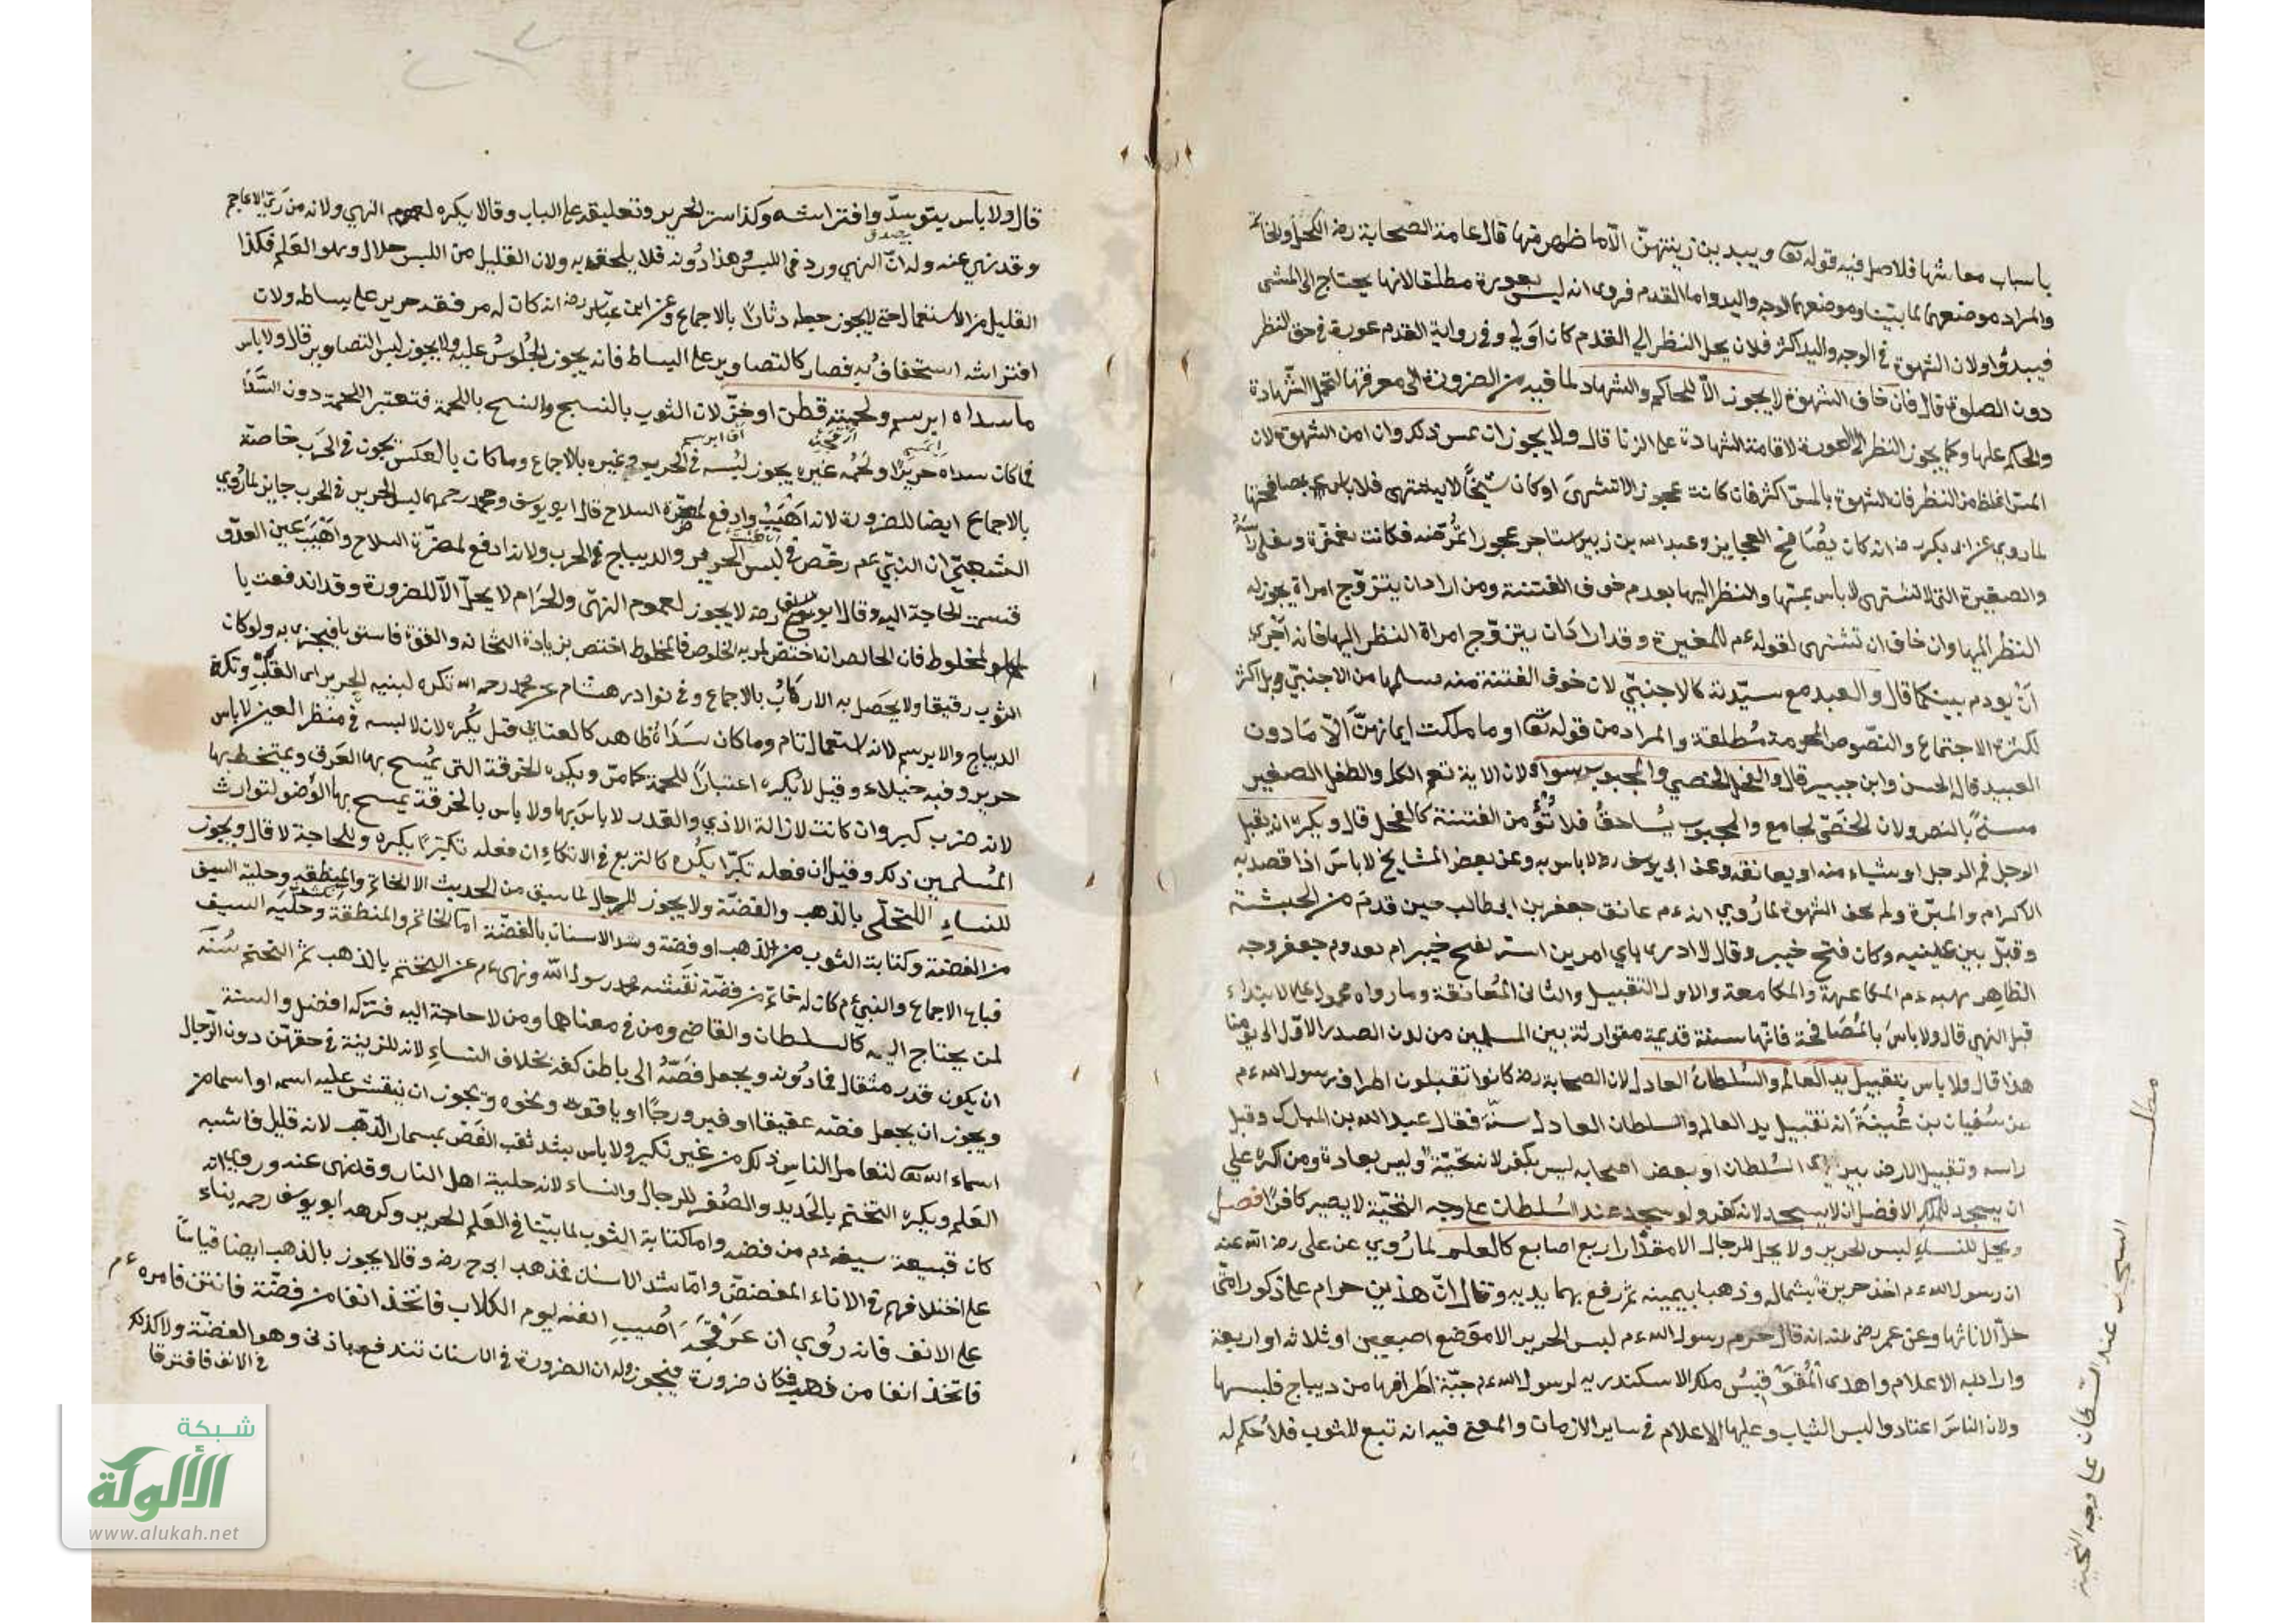 باسباب معاشها فلاصل فيه قوله تعا ويبدين زينتهنّ الّا ما ظهر منها قال عامة الصحابة رضه الكحل والخاتم
والمراد موضعهما لما بيّنا وموضعهما الوجه واليد واما القدم فروى انه ليس بعورة مطلقا لانها يحتاج الى المشى
فيبدوا ولان الشهوة في الوجه واليد اكثر فلان يحل النظر الي القدم كان اولي وفي رواية القدم عورة في حق النظر
دون الصلوة قال فان خاف الشهوة لا يجوز الّا للحاكم والشهاد لما فيه من الضرورة الى معرفتها لتحمل الشّهادة
والحكم عليها وكما يجوز النظر الى العورة لاقامة الشهادة على الزنا قال ولا يجوز ان يمس ذلك وان امن الشهوة لان
المسّ اغلظ من النظر فان الشهوة بالمسّ اكثر فان كانت عجوز الا تشتهى او كان شيخًا لا يشتهى فلا باس بمصافحتها
لما روى عن ابى بكر رضه انه كان يصافح العجايز وعبد الله بن زبير استاجر عجوزا تمرّضه فكانت تغمزه وتفلى راسه
والصغيرة التى لا تشتهى لا باس بمسّها والنظر اليها بعدم خوف الفتنة ومن اراد ان يتزوّج امراة يجوز له
النظر اليها وان خاف ان تشتهى لقوله ءم للمغيرة وقد اراد ان يتزوّج امراة النظر اليها فانه احرى
انْ يودم بينكما قال والعبد مع سيّدته كالاجنبيّ لان خوف الفتنة منه مثلها من الاجنبيّ وبل اكثر
لكثرة الاجتماع والنصّوص المحرمة مُطلقة والمراد من قوله تعا او ما ملكت ايمانهنّ الّا مَا دون
العبيد قال الحسن وابن جبير قال والفحل والخصي والمجبوب سواء ولان الاية تعم الكل والطفل الصغير
مستثنى بالنص ولان الخصّى يجامع والمجبوب يُساحقُ فلا تُؤمن الفتنة كالفحل قال ويكره ان يقبل
الرجل فم الرجل او شياء منه او يعانقه وعن ابى يوسف رضه لا باس به وعن بعض المشايخ لا باسَ اذا قصد به
الاكرام والمبرّة ولم يخف الشهوة لما رُوي انه ءم عانق جعفر بن ابى طالب حين قدمَ من الحبشة
وقبلّ بين عينيه وكان فتح خيبر وقال لا ادرى باي امرين استر بفتح خيبر ام بقدوم جعفر وجه
الظاهر نهيه ءم المكاعمة والمكامعة والاول التقبيل والثانى المُعانقة وما رواه محمول على الابتداء
قبل النهي قال ولا باسَ بالمُصَافحة فانّها سنة قديمة متوارثة بين المسلمين من لدن الصدر الاوّل الى يومنا
هذا قال ولا باس بتقبيل يد العالم والسُلطانُ العادل لان الصحابة رضه كانوا تقبلون اطراف رسول الله ءم
عن سُفيان بن عُيينة انه تقبيل يد العالم والسلطان العادل سنّة فقال عبد الله بن المبارك وقبل
راسه وتقبيل الارض بين يدى السُلطان او بعض اصحابه ليس بكفر لانه تحيّة وليس بعبادة ومن اكره علي
ان يسجد للملك الافضل ان لا يسجد لانه كفر ولو سجد عند السُلطان على وجه التحيّة لا يصير كافرًا فصل
ويحل للنساءِ لبس الحرير ولا يحل للرجال الا مقدار اربع اصابع كالعلم لما رُوي عن على رضه الله عنه
ان رسول الله ءم اخذ حريرة بشماله وذهبا بيمينه ثم رفع بهما يديه وقال انّ هذين حرام على ذكور امّتي
حلّ لاناثها وعن عمر رض عنه انه قال حرم رسول الله ءم لبس الحرير الا موضع اصبعين او ثلاثه او اربعة
واراد به الاعلام واهدى المُقوقِسُ ملك الاسكندريه لرسول الله ءم جبّة اطرافها من ديباج فلبسها
ولان الناسَ اعتادوا لبس الثياب وعليها الاعلام في ساير الازمان والمعنى فيه انه تبع للثوب فلا حكم له
مطلب
السجود عند السلطان على وجه التحية
قال ولا باس بتوسدّه وافتراشه وكذا ستر الحرير وتعليقه على الباب وقالا يكره لعموم النهي ولانه من زىّ الاعاجم
وقد نهى عنه وله انّ النهي ورد في اللبس وهذا دُونه فلا يلحق به ولان القليل من اللبس حلال وهو العَلم فكذا
القليل من الاستعمال حتى لا يجوز جعله دثارًا بالاجماع وعن ابن عبّاس رضه انه كان له مرفقة حرير على بساطه ولان
افتراشه استخفافُ به فصار كالتصاوير على البساط فانه يجوز الجلوسُ عليه ولا يجوز لبس التصاوير قال ولا باس
ما سداه ابرسم ولحمته قطن او خزّ لان الثوب بالنسج والنسج باللحمة فتعتبر اللحمة دون السَّدَا
فما كان سداه حريرًا ولحُمه غيره يجوز لبُسه في الحرب وغيره بالاجماع وما كان بالعكس يجوز في الحرَب خاصة
بالاجماع ايضا للضرورة لانه اهْيَبُ وادفع لمضرّة السلاح قال ابو يوسف ومحمد رحمهما لبس الحرير في الحرب جايز لما رُوي
الشعبيّ ان النبيّ ءم رخّص في لبس الحرير والديباج في الحرب ولانه ادفع لمضرّة السلاح واهْيَبَ عين العدّو
فمست الحاجة اليه وقال ابو حنيفه رضه لا يجوز لعموم النهّى والحَرَام لا يحلّ الّا للضرورة وقد اندفعت با
لمخلوط فان الخالص ان اختص بمزية الخلوص فالمخلوط اختص بزيادة الثخانه والقوّة فاستويا فيجتزى به ولو كان
الثوب رقيقا ولا يحَصل به الارهَابُ بالاجماع وفي نوادر هشام عن محمد رحمه الله تكره لبنيه الحرير اى القَلبْ وتكة
الديباج والابرسم لانه استعمال تام وما كان سَدَاهُ ظاهر كالعتابي قيل يُكره لان لابسه في منظر العين لابس
حرير وفيه خيلاء وقيل لا يُكره اعتبارًا للحمة كما مرّ ويكره الخرقة التى يُمسح بها العَرق ويمتخط بها
لانه ضرب كبر وان كانت لازالة الاذي والقذر لا باسَ بها ولا باس بالخرقة يمسح بها الوُضو لتوارث
المُسلمين ذلك وقيل ان فعله تكبّرا يكُره كالتربع في الاتكاء ان فعله تكبرًا يكره وللحاجة لا قال ويجوز
للنساءِ التحلّى بالذهب والفضّة ولا يجوز للرجال لما سبق من الحديث الا الخاتم والمنطقه وحلية السيف
من الفضة وكتابت الثوب من الذهب او فضة وشد الاسنان بالفضّة امّا الخاتم والمنطقةُ وحليَة السيف
فباع الاجماع والنبي ءم كان له خاتم من فضّة نقشه محمد رسول الله ونهى ءم عن التختم بالذهب ثم التختم سُنّة
لمن يحتاج اليه كالسلطان والقاضى ومن في معناهما ومن لا حاجة اليه فتركه افضل والسنة
ان يكون قدر مثقال فما دُونه ويجعل فَصّهُ الى باطن كفه بخلاف النساءِ لانه للزينة في حقهّن دون الرّجال
ويجوز ان يجعل فصّه عقيقا او فيرورجًا او ياقوت ونحوه ويجوز ان ينقش عليه اسمه او اسما من
اسماء الله تعا لتعامل الناس ذلك من غير نكير ولا باس بشد ثقب الفَصّ بمسمار الذّهب لانه قليل فاشبه
العَلم ويكره التختم بالحَديد والصُفر للرجال والنساء لانه حلية اهل النار وقد نهى عنه وروي انه
كان قبيعة سيفه ءم من فضه واما كتابة الثوب لما بيّنا في العَلم الحرير وكرهه ابو يوسف رحمه بناء
على اختلافهم في الاناء المفضضّ وامّا شد الاسنان فمذهب ابى ح رضه وقالا يجوز بالذهب ايضا قياسًا
على الانف فانه رُوي ان عَرْفجَة اُصيبِ انفه ليوم الكلاب فاتخذ انفا من فضّة فانتن فامره ءم
فاتخذ انفا من ذهب فكان ضرورة فيجوز وله ان الضرورة في الاسنان تندفع باذنى وهو الفضّة ولا كذلك
في الانف فافترقا
شبكة
الألوكة
www.alukah.net